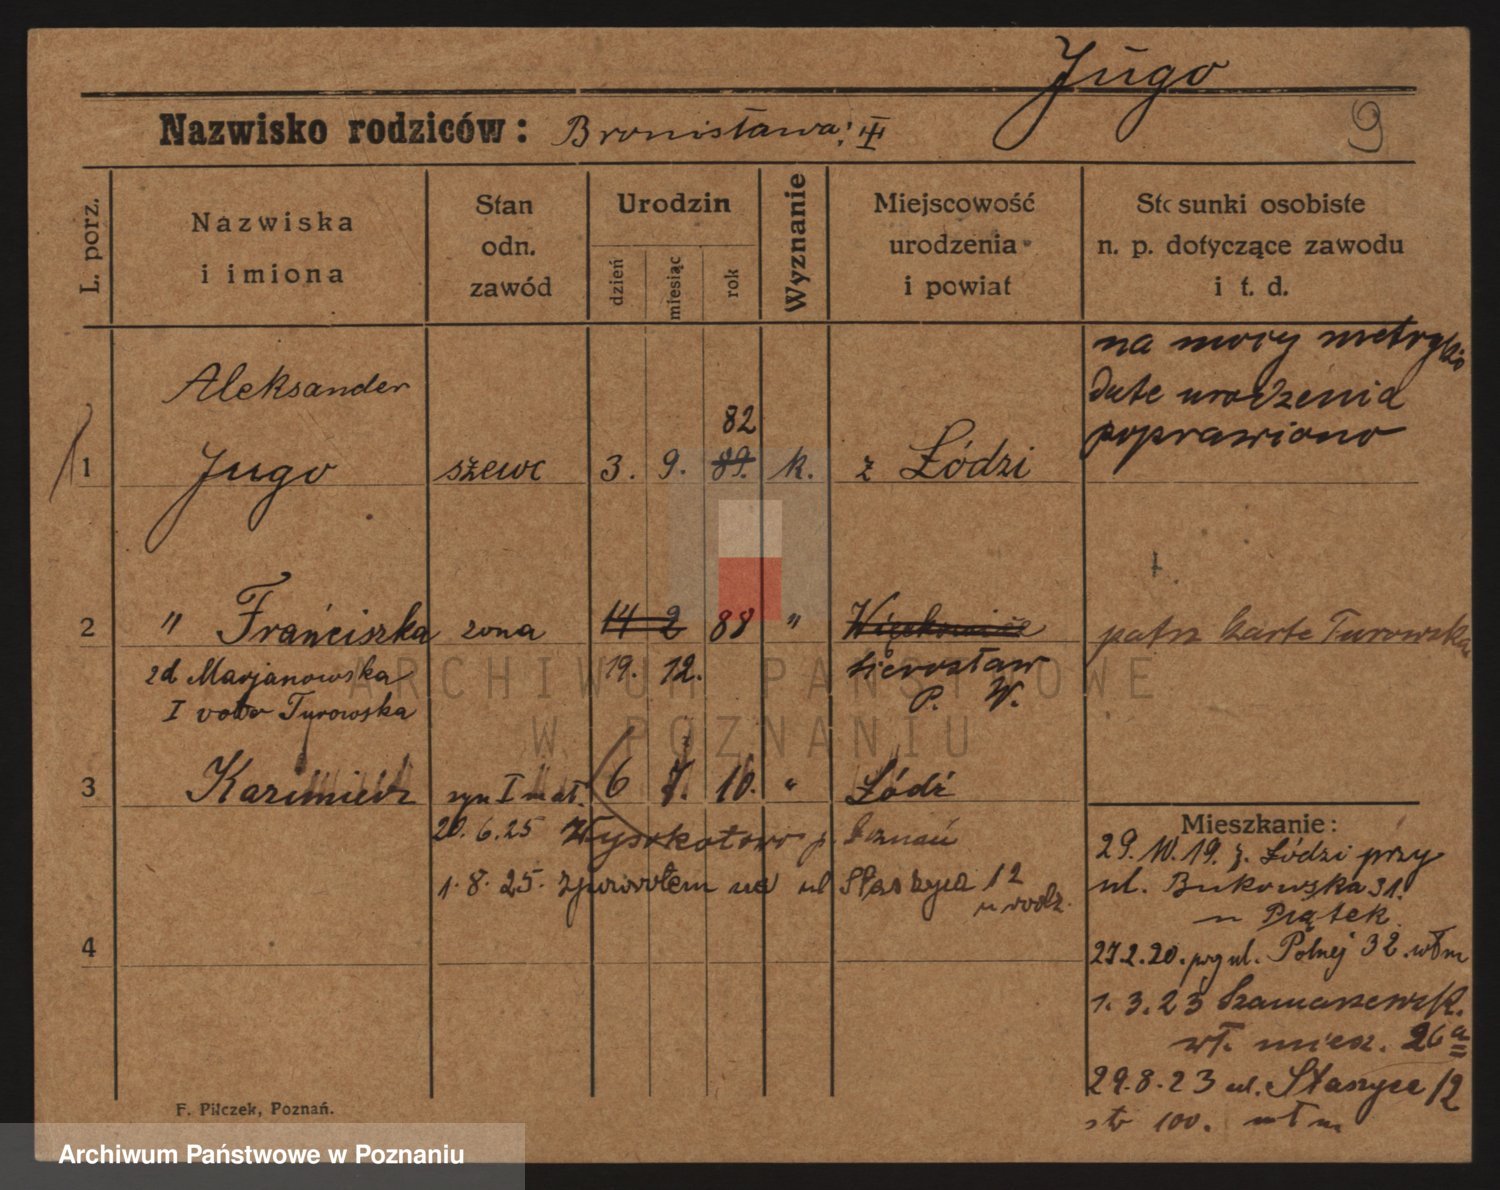 Jugo
Nazwisko rodziców: Bronisława;
9
L. porz.
Nazwiska
i imiona
Stan
odn.
zawód
Urodzin
dzień
miesiąc
rok
Wyznanie
Miejscowość
urodzenia
i powiat
Stosunki osobiste
n. p. dotyczące zawodu
i t. d.
na mocy metryki
date urodzenia
poprawiono
Aleksander
82
1 Jugo szewc 3. 9. 89. k. z Łódzi
2 " Franciszka żona 14 2 88 "
patrz karte Turowska
zd Marjanowska 19. 12. Sierosław
I voto Turowska P. W.
3 Kazimierz syn I mał. 6 7. 10. " Łódź
20.6.25 Wysokotowo p. Poznań
1.8.25. zpowrotem na ul Staszyca 12
u rodz.
4
Mieszkanie:
29.10.19. z. Łódzi przy
ul. Bukowska 31.
u Piątek
27.2.20. przy ul. Polnej 32. wł m
1.3.23 Szamarzewsk.
wł. miesz. 26 a
29.8.23 ul. Staszyca 12
str 100. wł m
F. Pilczek, Poznań.
ARCHIWUM PAŃSTWOWE
W POZNANIU
Archiwum Państwowe w Poznaniu